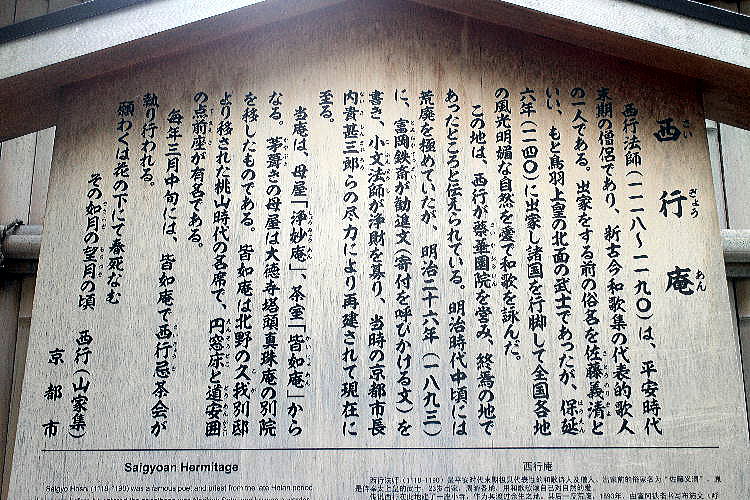 西行庵
西行法師（一一一八〜一一九〇）は、平安時代
末期の僧侶であり、新古今和歌集の代表的歌人
の一人である。出家をする前の俗名を佐藤義清と
いい、もと鳥羽上皇の北面の武士であったが、保延
六年（一一四〇）に出家し諸国を行脚して全国各地
の風光明媚な自然を愛で和歌を詠んだ。
この地は、西行が蔡華園院を営み、終焉の地で
あったところと伝えられている。明治時代中頃には
荒廃を極めていたが、明治二十六年（一八九三）
に、富岡鉄斎が勧進文（寄付を呼びかける文）を
書き、小文法師が浄財を募り、当時の京都市長
内貴甚三郎らの尽力により再建されて現在に
至る。
当庵は、母屋「浄妙庵」、茶室「皆如庵」から
なる。茅葺きの母屋は大徳寺塔頭真珠庵の別院
を移したものである。皆如庵は北野の久我別邸
より移された桃山時代の名席で、円窓床と道安囲
の点前座が有名である。
毎年三月中旬には、皆如庵で西行忌茶会が
執り行われる。
願わくは花の下にて春死なむ
その如月の望月の頃 西行（山家集）
京都市
Saigyoan Hermitage
Saigyo Hoshi (1118-1190) was a famous poet and priest from the late Heian period.
西行庵
西行法师（1118-1190）是平安时代末期极具代表性的和歌诗人及僧人，出家前的俗家名为“佐藤义清”，